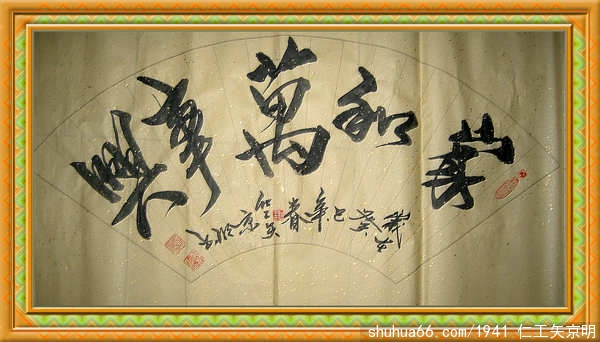 家和萬事興
癸巳年春
shuhua66.com/1941 仁工矢京明